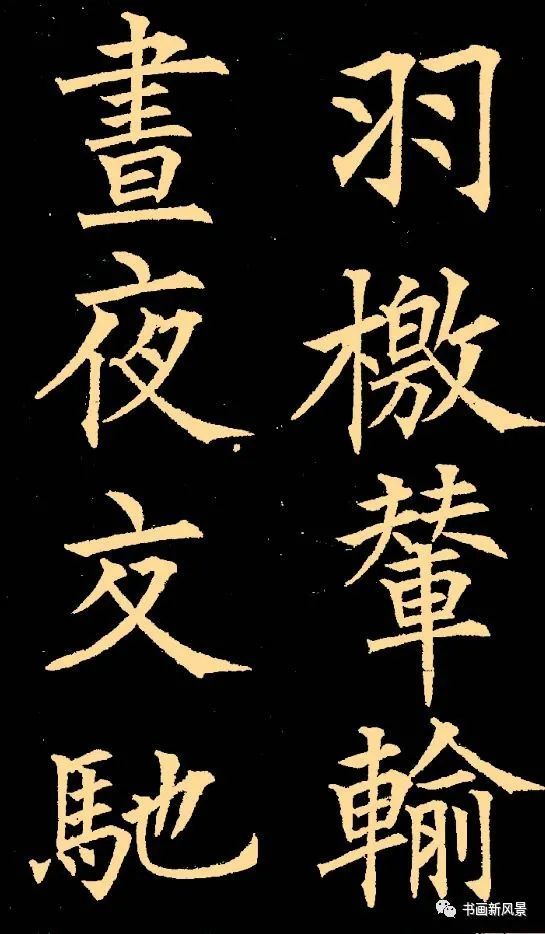 羽檄輦輸
晝夜交馳
书画新风景